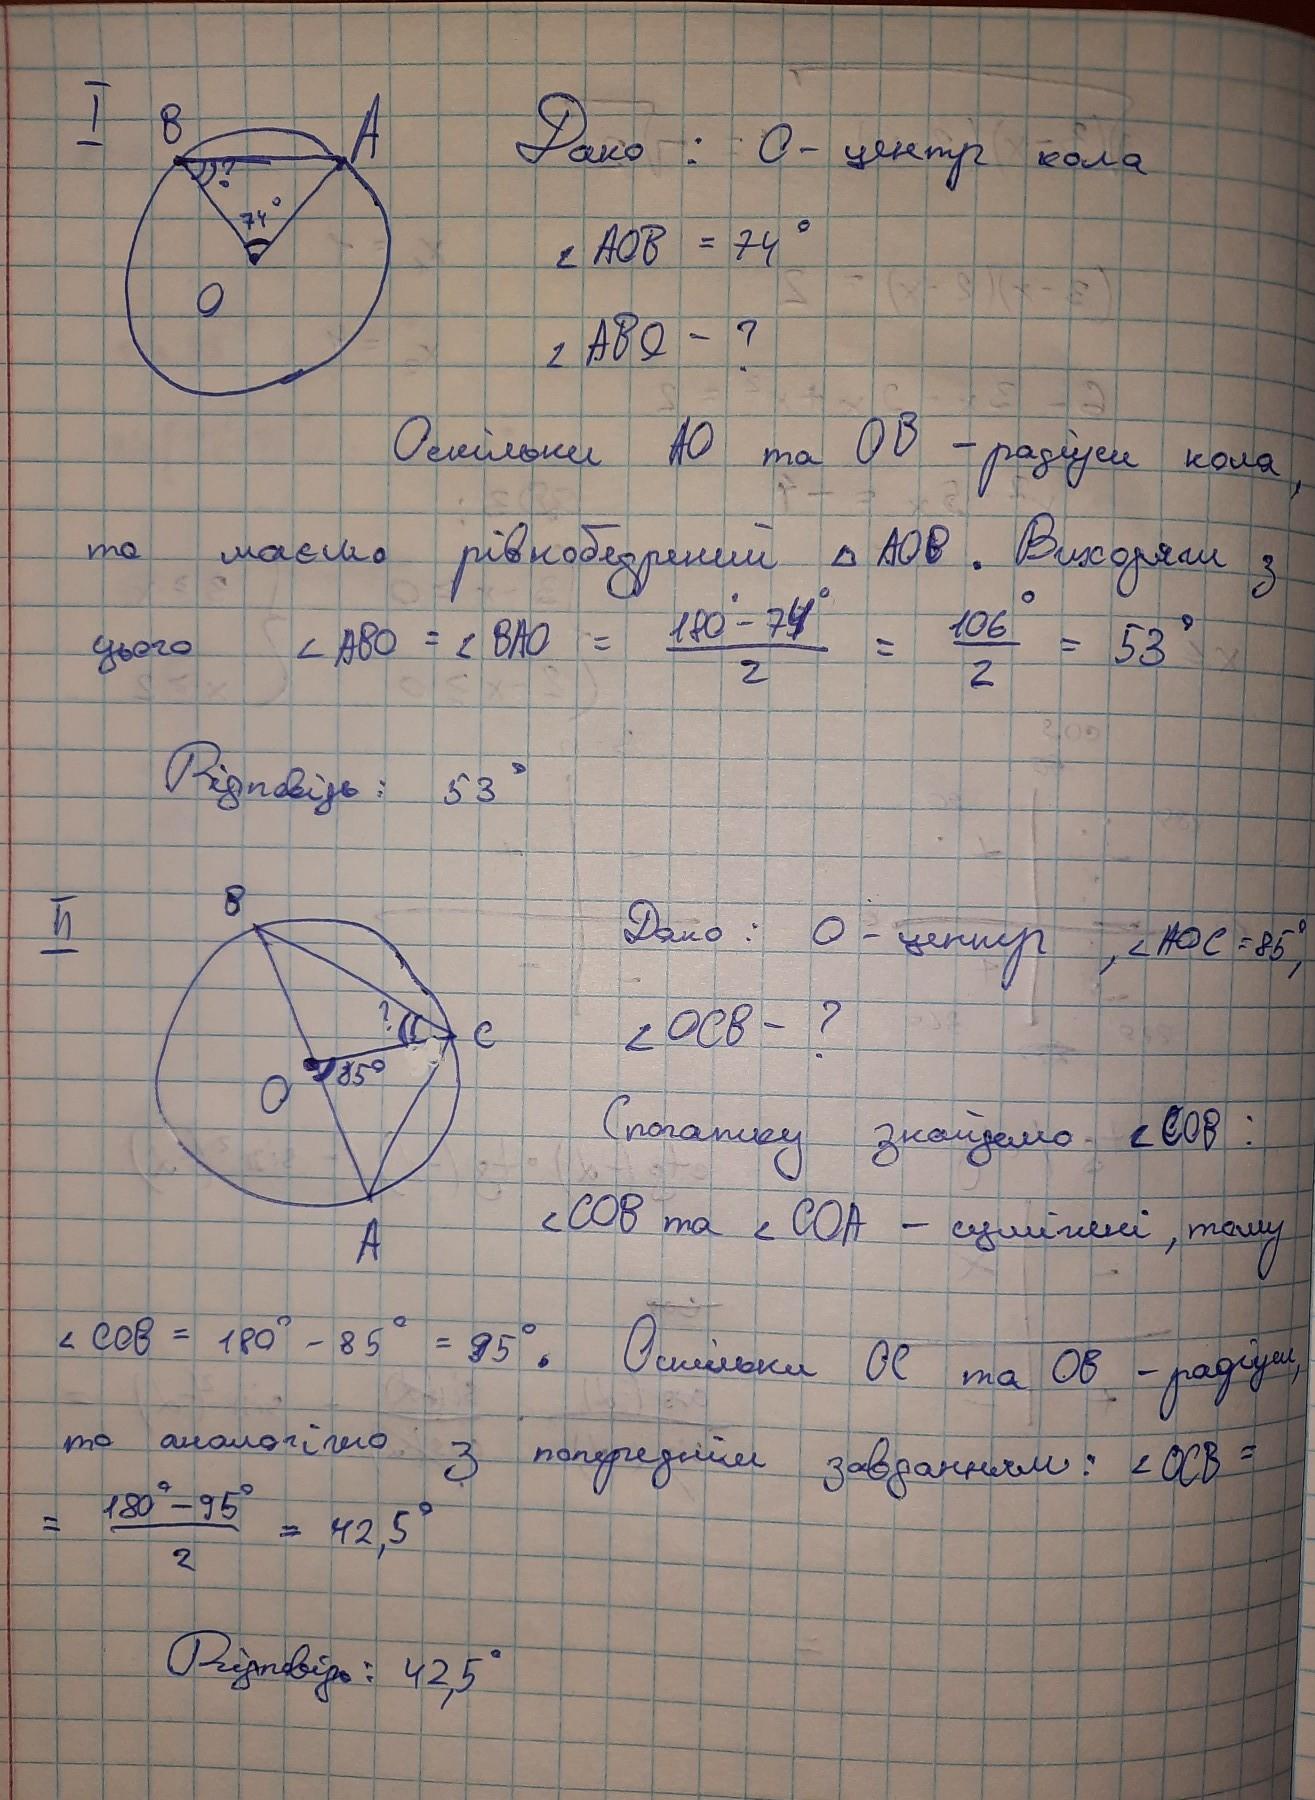 I
B
A
?
74°
O
Дано : О - центр кола
∠AOB = 74°
∠ABO - ?
Оскільки AO та OB - радіуси кола,
то маємо рівнобедрений △ AOB. Виходячи з
цього ∠ABO = ∠BAO = (180° - 74°)/2 = 106°/2 = 53°
Відповідь: 53°
II
B
?
C
O
85°
A
Дано: О - центр, ∠AOC = 85°,
∠OCB - ?
Спочатку знайдемо ∠COB:
∠COB та ∠COA - суміжні, тому
∠COB = 180° - 85° = 95°. Оскільки OC та OB - радіуси,
то аналогічно з попереднім завданням: ∠OCB =
= (180° - 95°)/2 = 42,5°
Відповідь: 42,5°